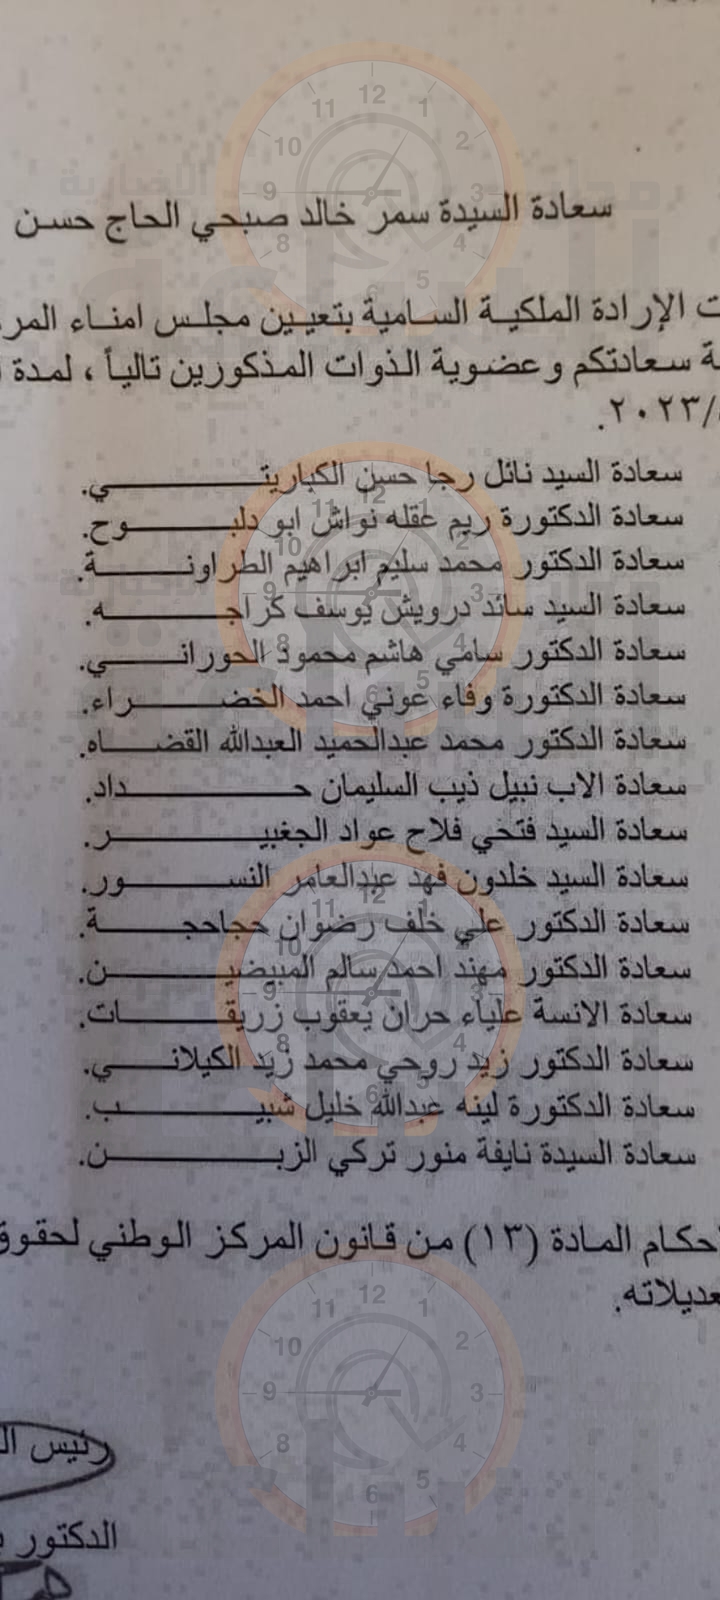 سعادة السيدة سمر خالد صبحي الحاج حسن
ت الإرادة الملكية السامية بتعيين مجلس امناء المر
ة سعادتكم وعضوية الذوات المذكورين تالياً ، لمدة
/٢٠٢٣.
سعادة السيد نائل رجا حسن الكباريتـــــي.
سعادة الدكتورة ريم عقله نواش ابو دلبـــــوح.
سعادة الدكتور محمد سليم ابراهيم الطراونـــــة.
سعادة السيد سائد درويش يوسف كراجـــــه.
سعادة الدكتور سامي هاشم محمود الحورانـــــي.
سعادة الدكتورة وفاء عوني احمد الخضـــــراء.
سعادة الدكتور محمد عبدالحميد العبدالله القضـــــاه.
سعادة الاب نبيل ذيب السليمان حـــــداد.
سعادة السيد فتحي فلاح عواد الجغبيـــــر.
سعادة السيد خلدون فهد عبدالعامر النســـــور.
سعادة الدكتور علي خلف رضوان حجاحجـــــة.
سعادة الدكتور مهند احمد سالم المبيضيـــــن.
سعادة الانسة علياء حران يعقوب زريقـــــات.
سعادة الدكتور زيد روحي محمد زيد الكيلانـــــي.
سعادة الدكتورة لينه عبدالله خليل شبيـــــب.
سعادة السيدة نايفة منور تركي الزبـــــن.
حكام المادة (١٣) من قانون المركز الوطني لحقوق
عديلاته.
رئيس ال
الدكتور